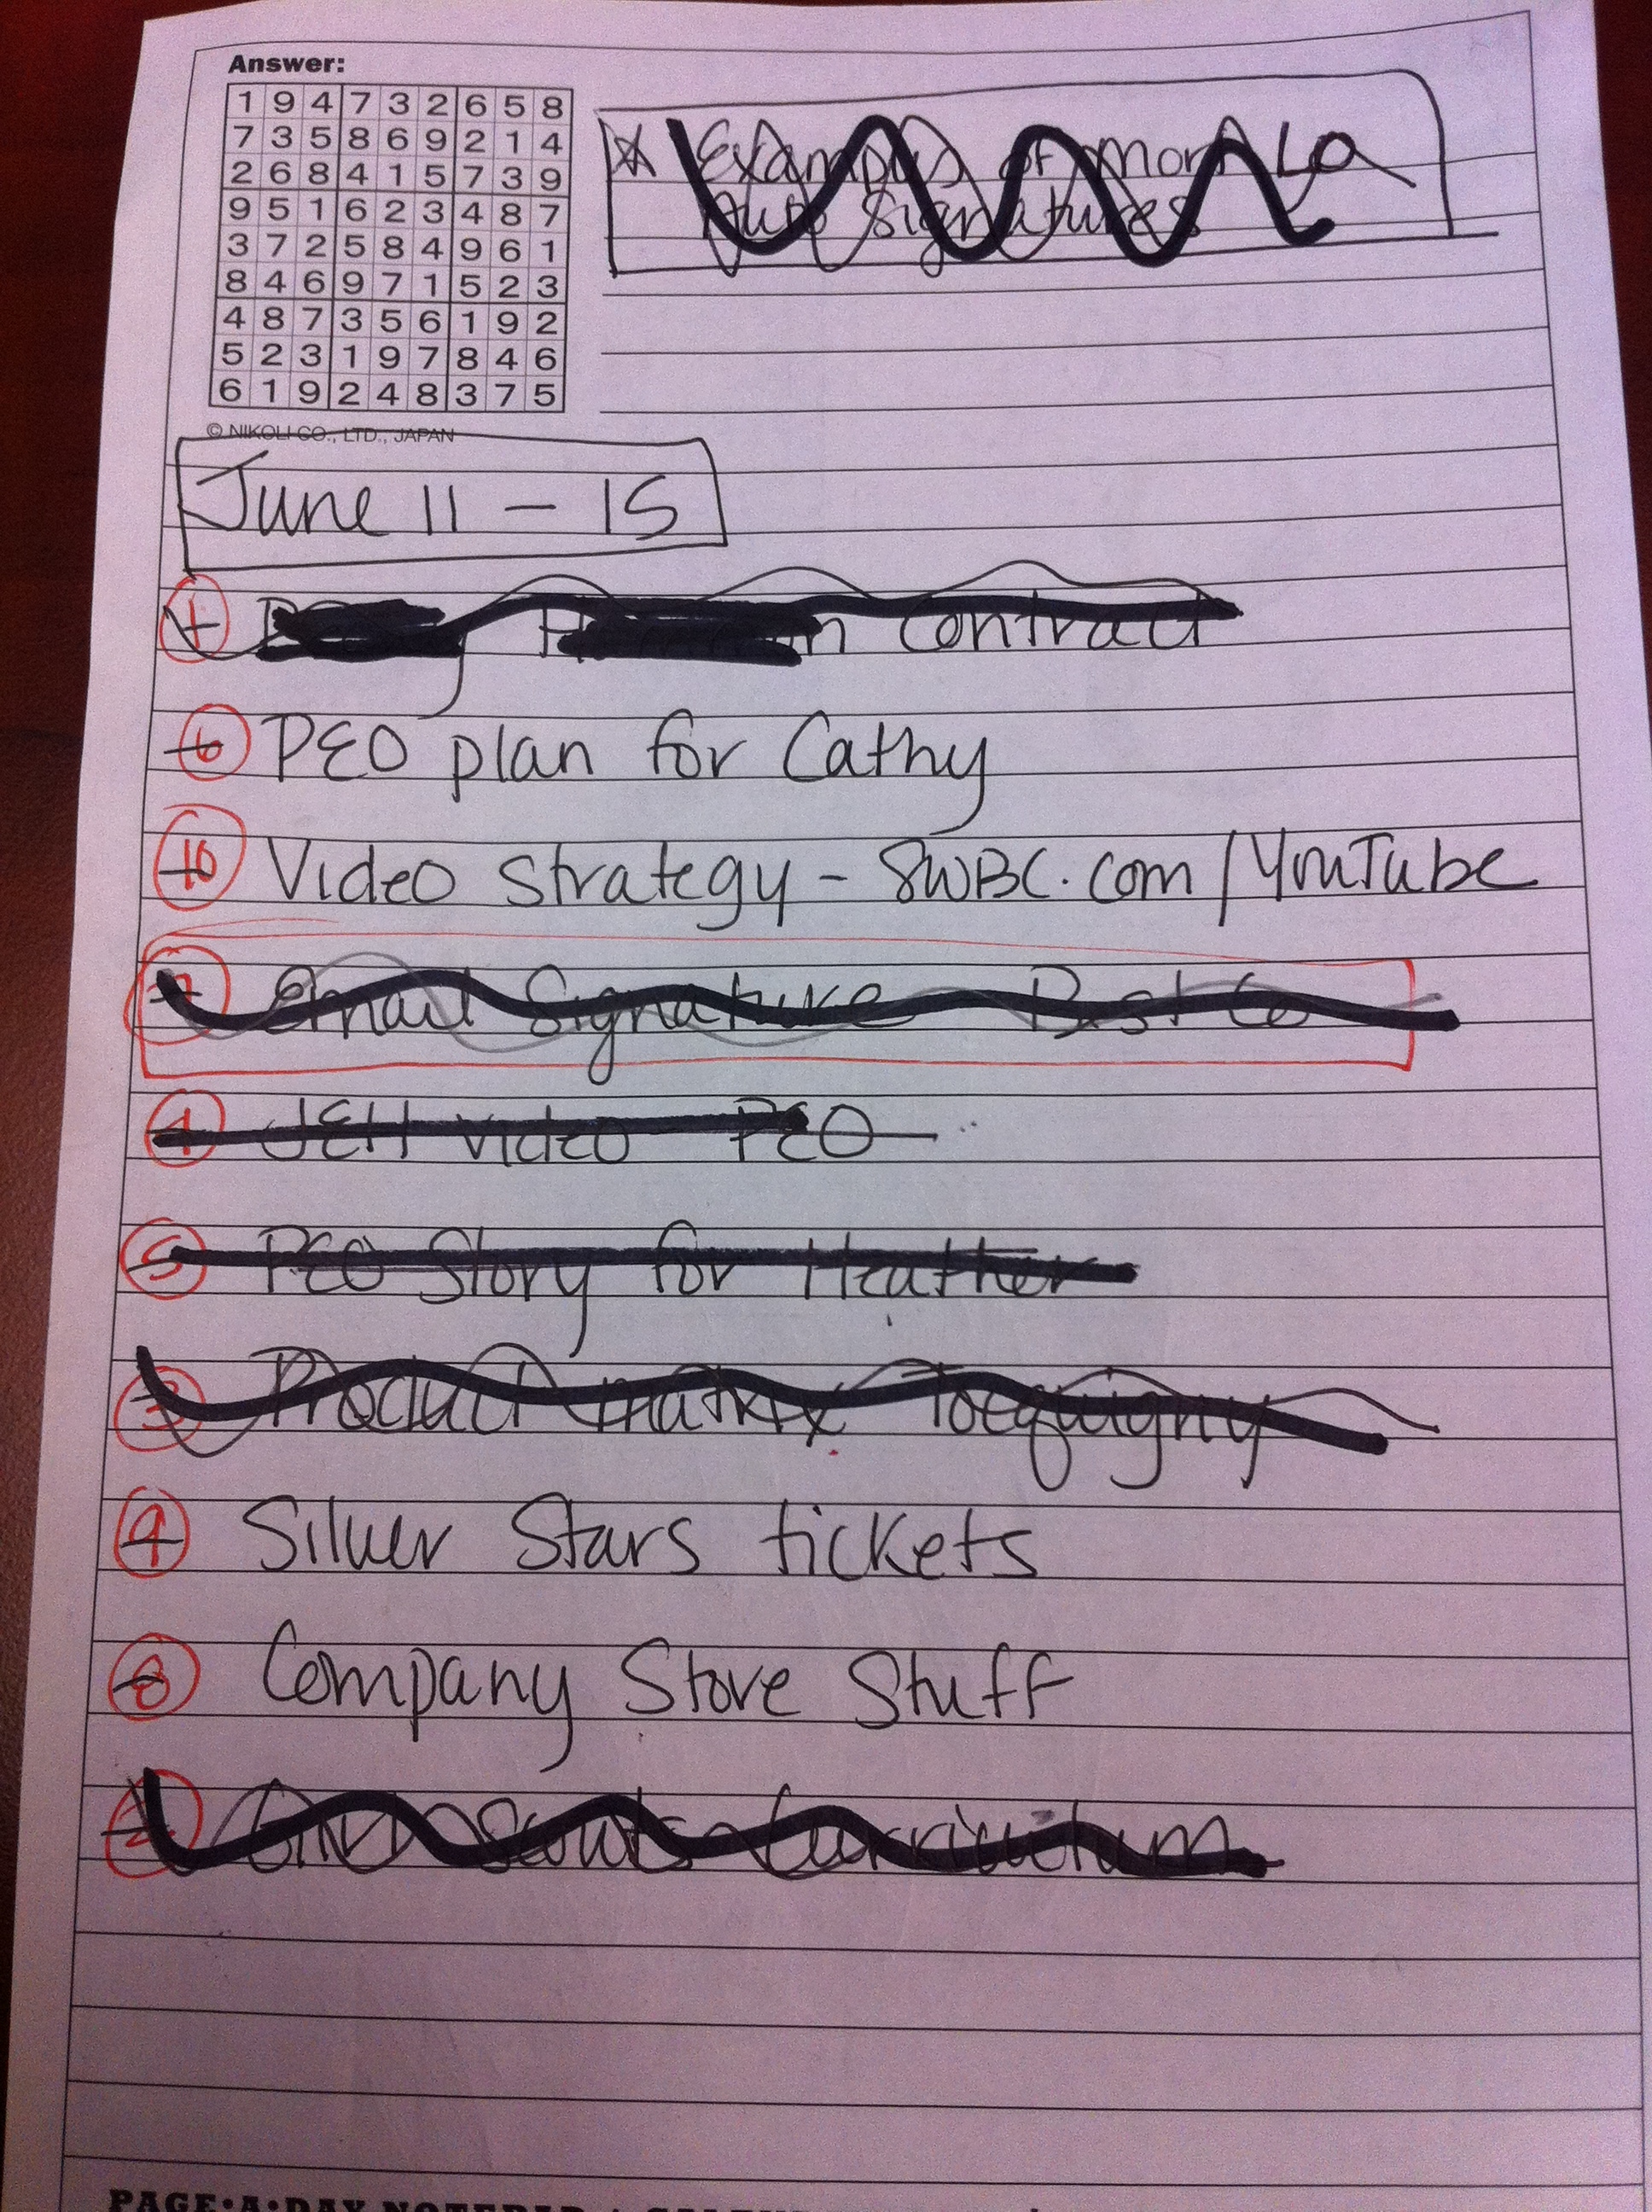 Answer:
1 9 4 7 3 2 6 5 8
7 3 5 8 6 9 2 1 4
2 6 8 4 1 5 7 3 9
9 5 1 6 2 3 4 8 7
3 7 2 5 8 4 9 6 1
8 4 6 9 7 1 5 2 3
4 8 7 3 5 6 1 9 2
5 2 3 1 9 7 8 4 6
6 1 9 2 4 8 3 7 5
© NIKOLI CO., LTD., JAPAN
Examples of
Auto Signatures
June 11 - 15
1 contract
6 PEO plan for Cathy
10 Video strategy - SWBC.com/YouTube
Email Signature Best Co
JEH video PEO
5 PEO Story for Heather
3 Product matrix Tocquigny
9 Silver Stars tickets
8 Company Store Stuff
2 Girl Scouts Curriculum
PAGE•A•DAY NOTEPAD